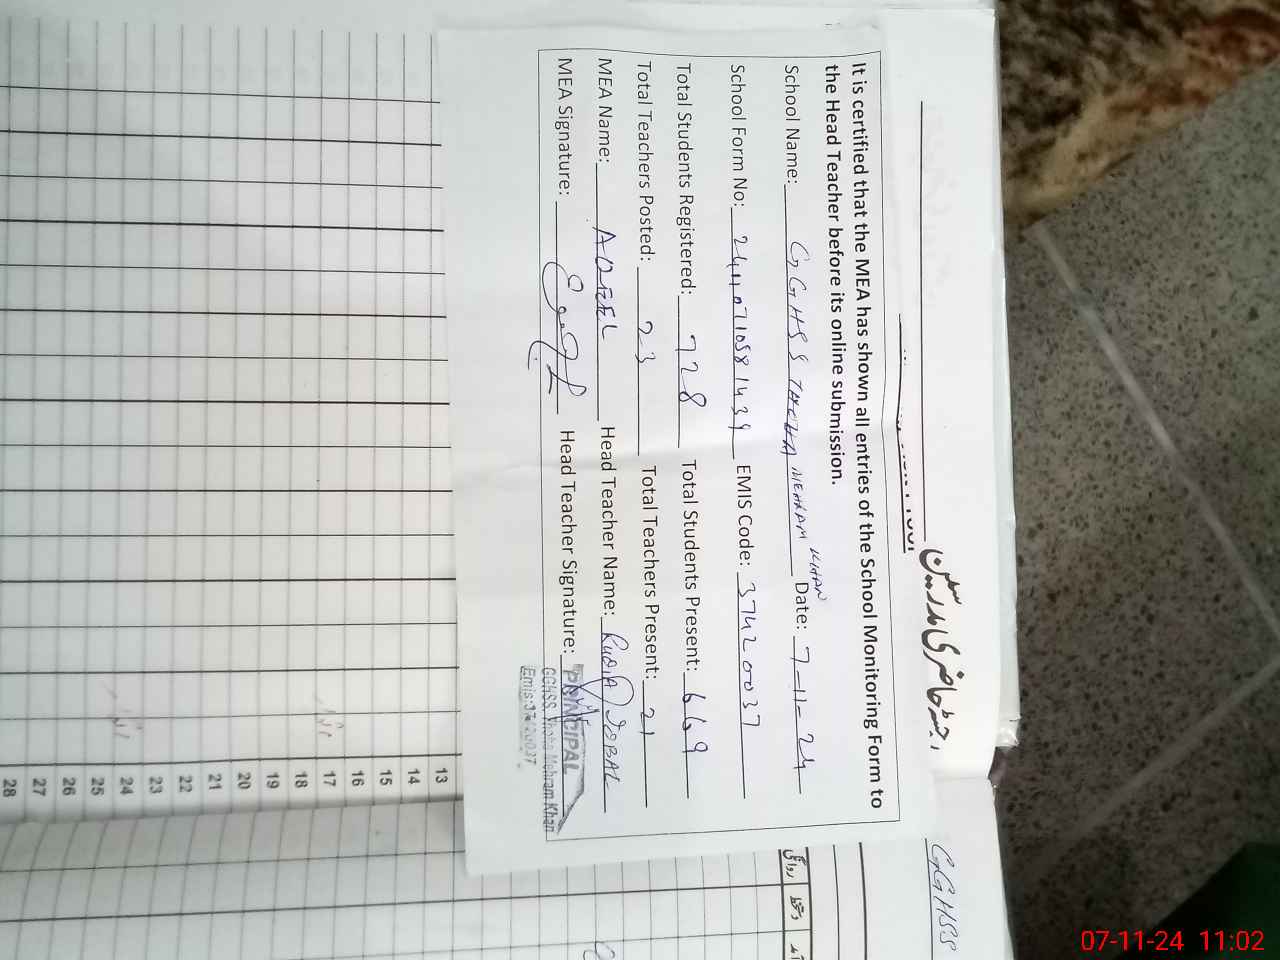 رجسٹر حاضری مدرسین
GGHSS
It is certified that the MEA has shown all entries of the School Monitoring Form to
the Head Teacher before its online submission.
School Name: GGHSS THOHA MEHRAM KHAN Date: 7-11-24
School Form No: EMIS Code: 37420037
Total Students Registered: 728 Total Students Present: 669
Total Teachers Posted: 23 Total Teachers Present: 21
MEA Name: ADEEL Head Teacher Name: IQBAL
MEA Signature: Head Teacher Signature:
PRINCIPAL
GGHSS. Thoha Mehram Khan
Emis:37420037
روانگی دستخط آمد
13
14
15
16
17
18
19
20
21
22
23
24
25
26
27
28
07-11-24 11:02